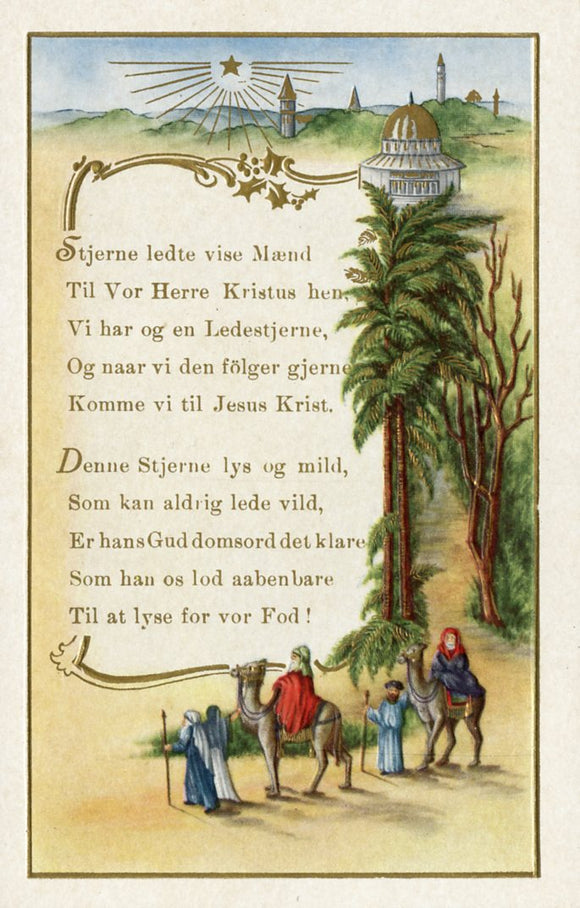 Stjerne ledte vise Mænd
Til Vor Herre Kristus hen,
Vi har og en Ledestjerne,
Og naar vi den fölger gjerne
Komme vi til Jesus Krist.
Denne Stjerne lys og mild,
Som kan aldrig lede vild,
Er hans Guddomsord det klare
Som han os lod aabenbare
Til at lyse for vor Fod!